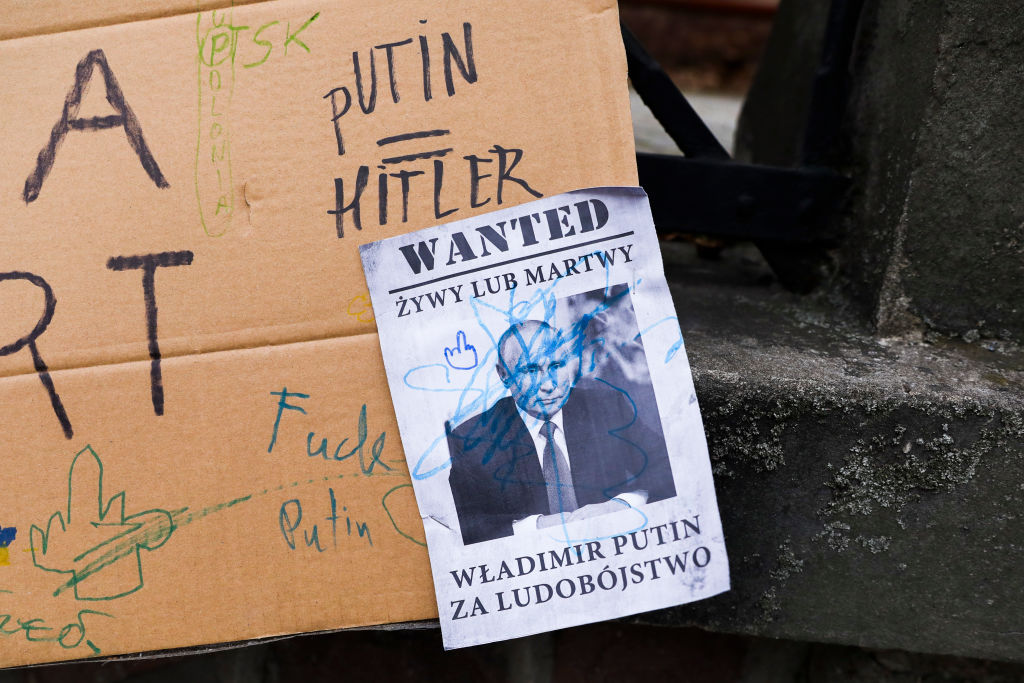 A
RT
PTSK
POLONIA
PUTIN
=
HITLER
WANTED
ŻYWY LUB MARTWY
WŁADIMIR PUTIN
ZA LUDOBÓJSTWO
Fuck
Putin